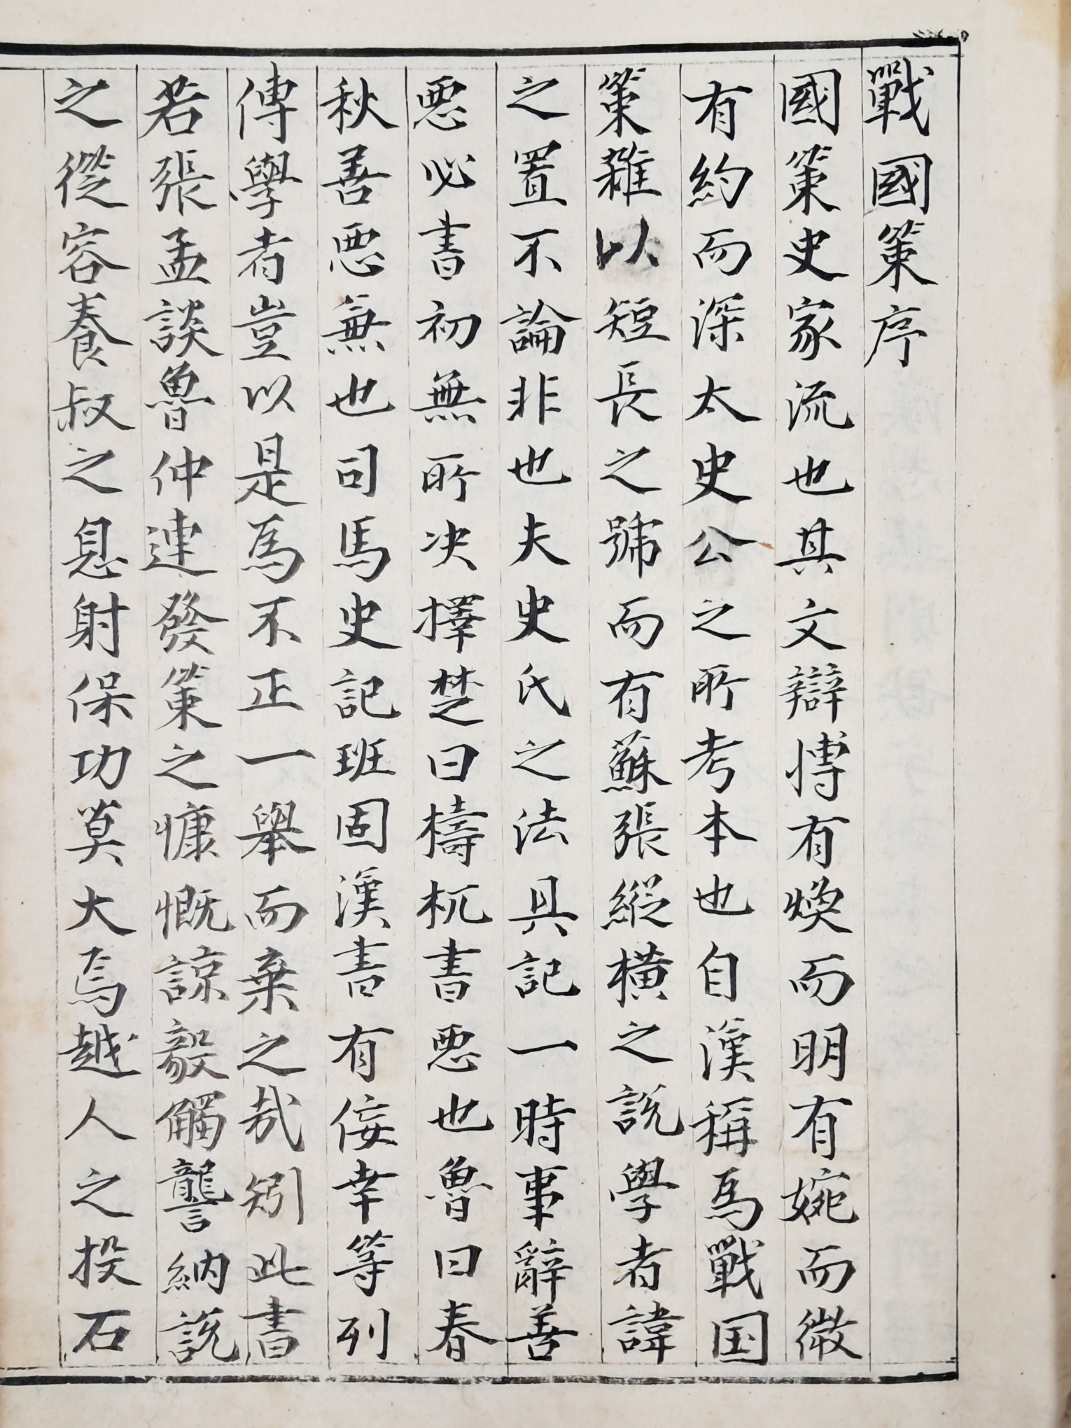 戰國策序
國策史家流也其文辯愽有煥而明有婉而微
有約而深太史公之所考本也自漢稱爲戰国
策雜以短長之號而有蘇張縱橫之説學者諱
之置不論非也夫史氏之法具記一時事辭善
悪必書初無所决擇楚曰檮杌書悪也魯曰春
秋善悪無也司馬史記班固漢書有佞幸等列
傳學者豈以是爲不正一舉而棄之哉矧此書
若張孟談魯仲連發策之慷慨諒毅觸讋納説
之從容養叔之息射保功莫大焉越人之投石